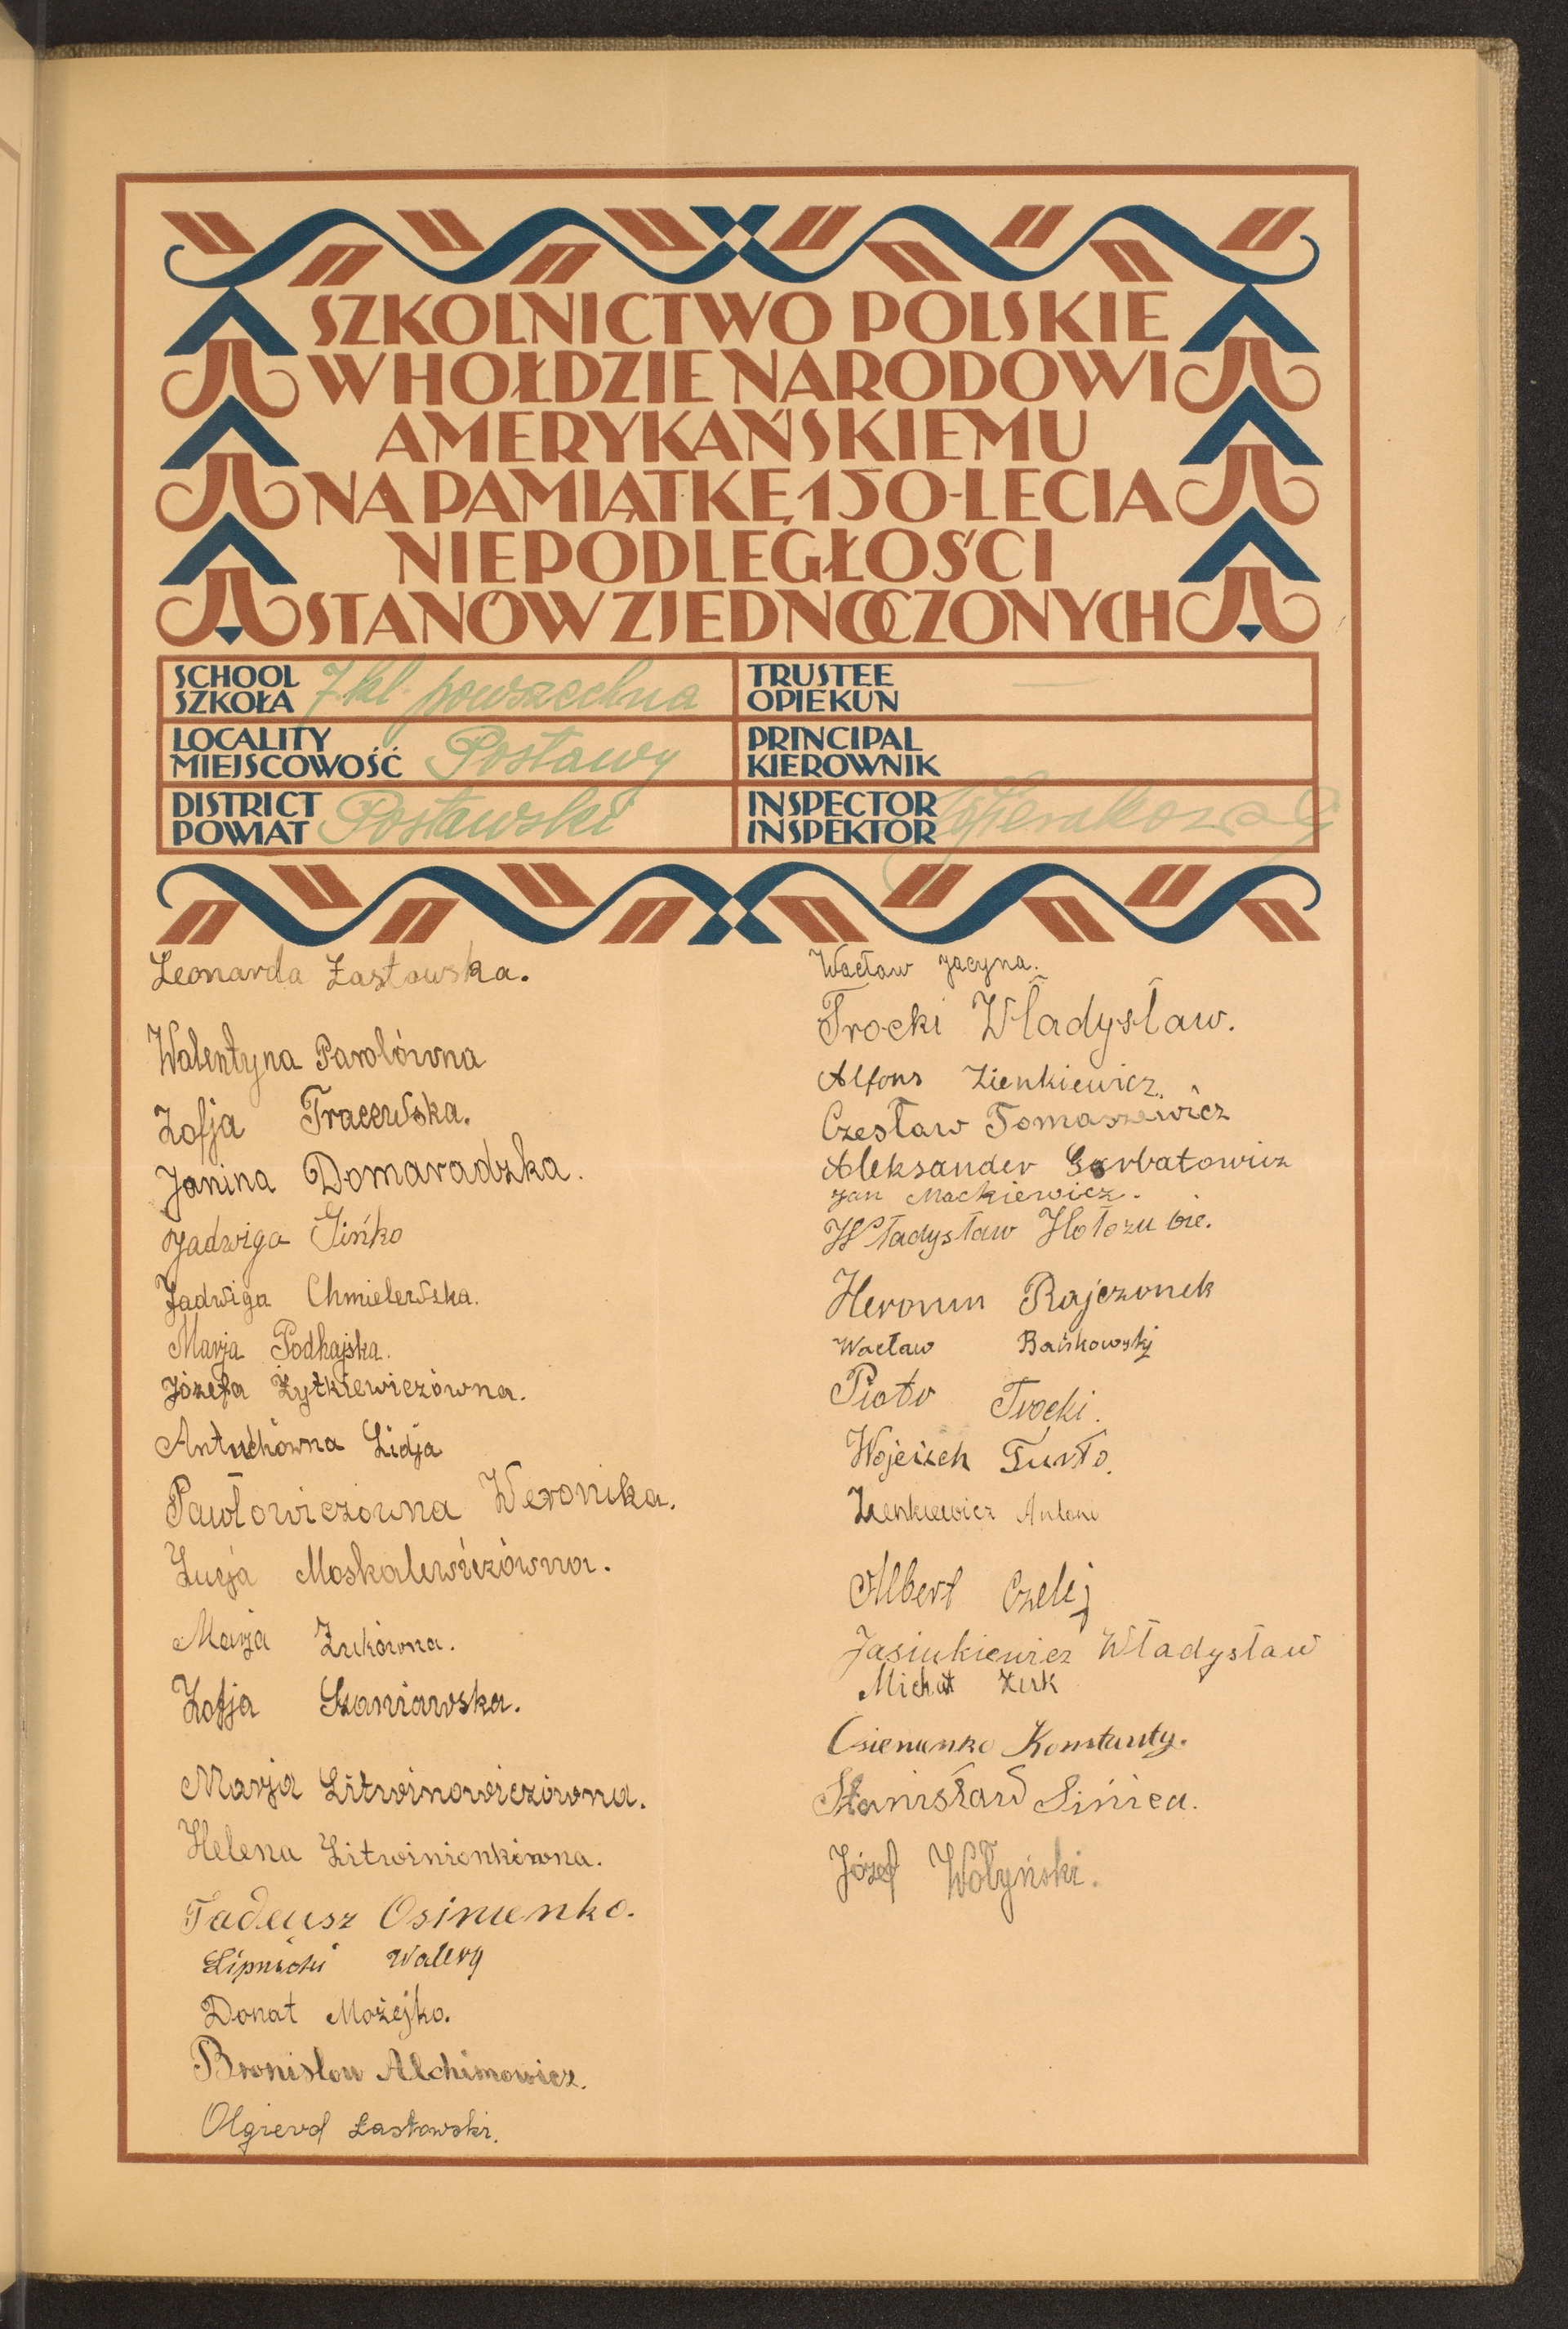 SZKOLNICTWO POLSKIE
W HOŁDZIE NARODOWI
AMERYKAŃSKIEMU
NA PAMIĄTKĘ 150-LECIA
NIEPODLEGŁOŚCI
STANÓW ZJEDNOCZONYCH
SCHOOL
SZKOŁA 7 kl. powszechna
LOCALITY
MIEJSCOWOŚĆ Postawy
DISTRICT
POWIAT Postawski
TRUSTEE
OPIEKUN —
PRINCIPAL
KIEROWNIK
INSPECTOR
INSPEKTOR
Leonarda Łastowska.
Walentyna Parolówna
Zofja Tracewska.
Janina Domaradzka.
Jadwiga Gińko
Jadwiga Chmielewska.
Marja Podhajska.
Józefa Żytkiewiczówna.
Antuchówna Lidja
Pawłowiczówna Weronika.
Łucja Moskalewiczówna.
Marja Żukówna.
Zofja Szaniawska.
Marja Litwinowiczówna.
Helena Litwinionkówna.
Tadeusz Osinienko.
Lipnicki Walery
Donat Możejko.
Bronisław Alchimowicz.
Olgierd Łastowski.
Wacław Jacyna.
Trocki Władysław.
Alfons Zienkiewicz.
Czesław Tomaszewicz
Aleksander Garbatowicz
Jan Mackiewicz.
Władysław Hołozubie.
Heronim Rajczonek
Wacław Bańkowskj
Piotr Trocki.
Wojciech Turło.
Zienkiewicz Antoni
Albert Czelej
Jasiukiewicz Władysław
Michał Żuk
Osienienko Konstanty.
Stanisław Sinica.
Józef Wołyński.